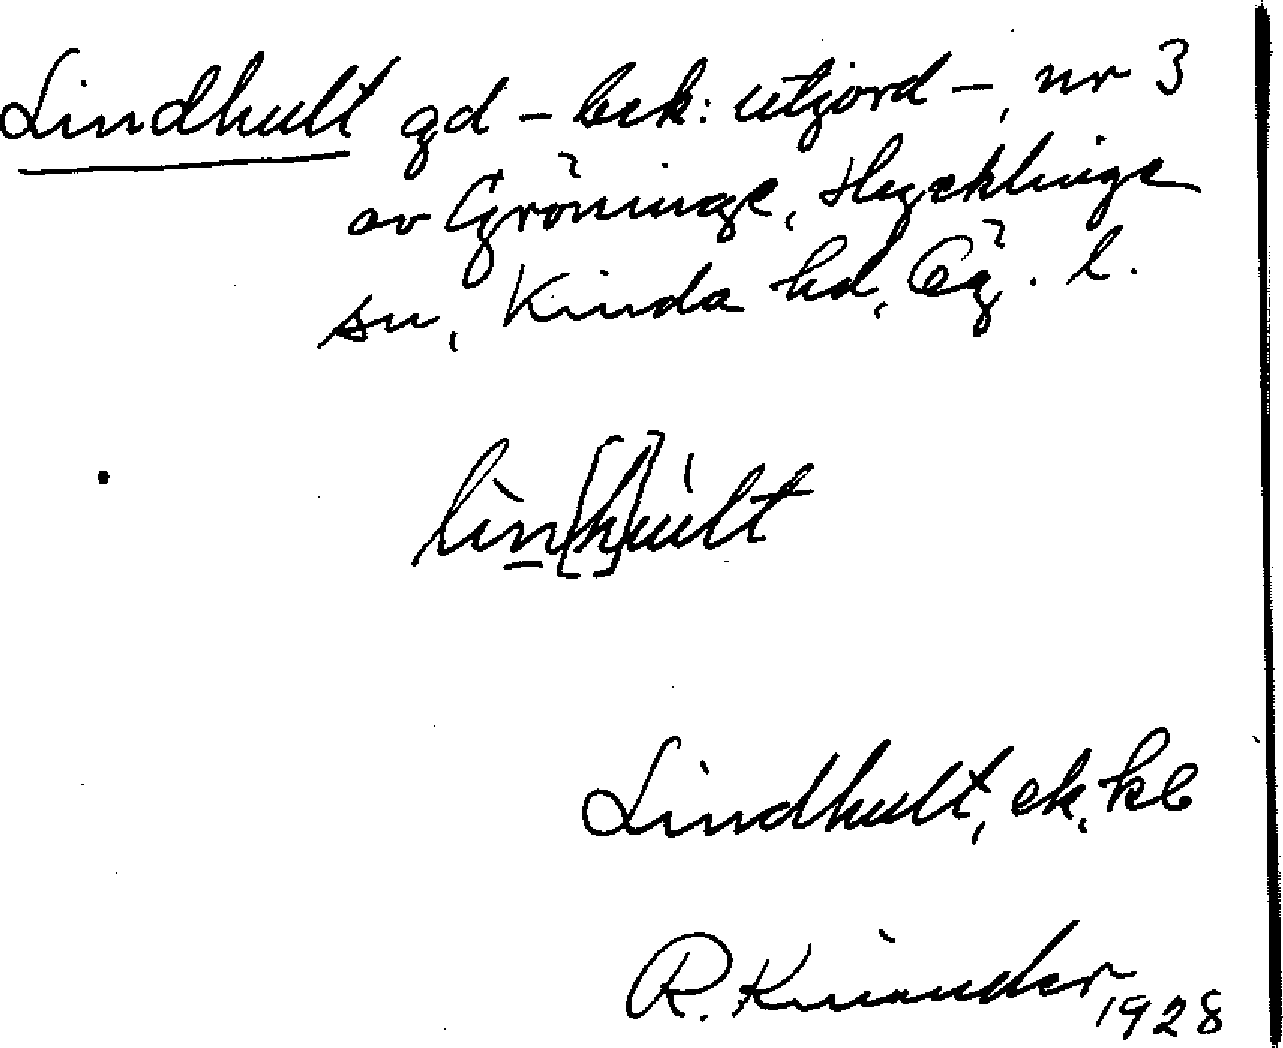 Lindhult gd – bek: utjord –, nr 3
av Gröninge, Hycklinge
sn, Kinda hd, Ög. l.
lìn[h]últ
Lindhult, ek, kb
R. Kinander 1928